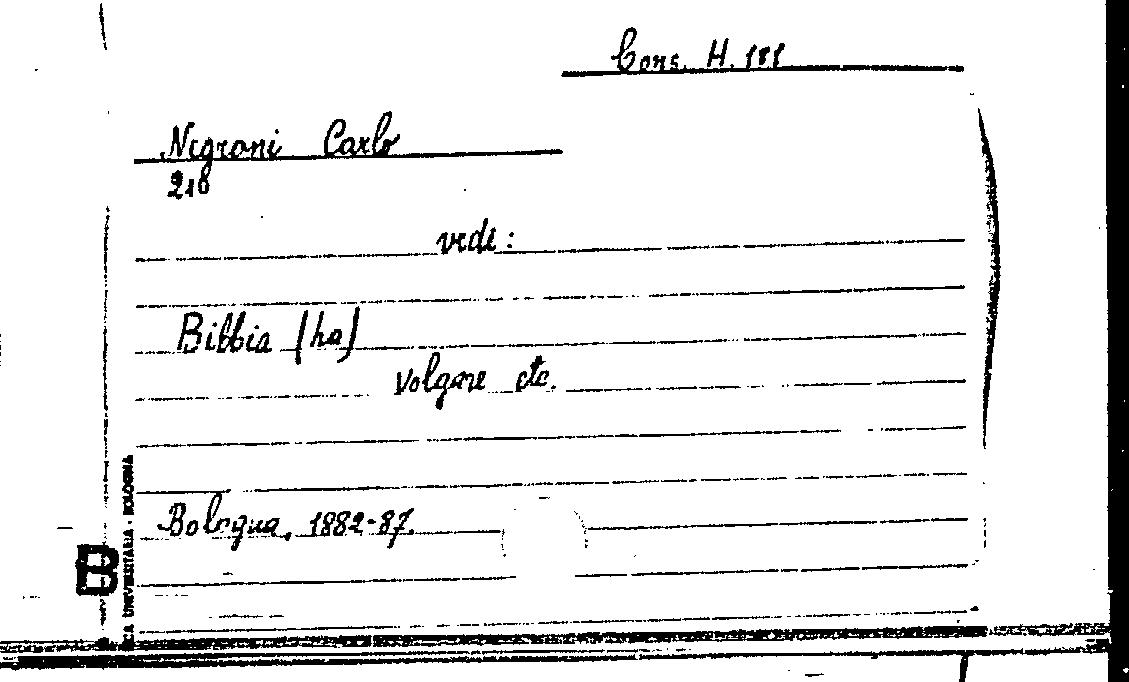 Cons. H. 181
Negroni Carlo
218
vedi:
Bibbia (La)
volgare etc.
Bologna, 1882-87.
B
ICA UNIVERSITARIA - BOLOGNA